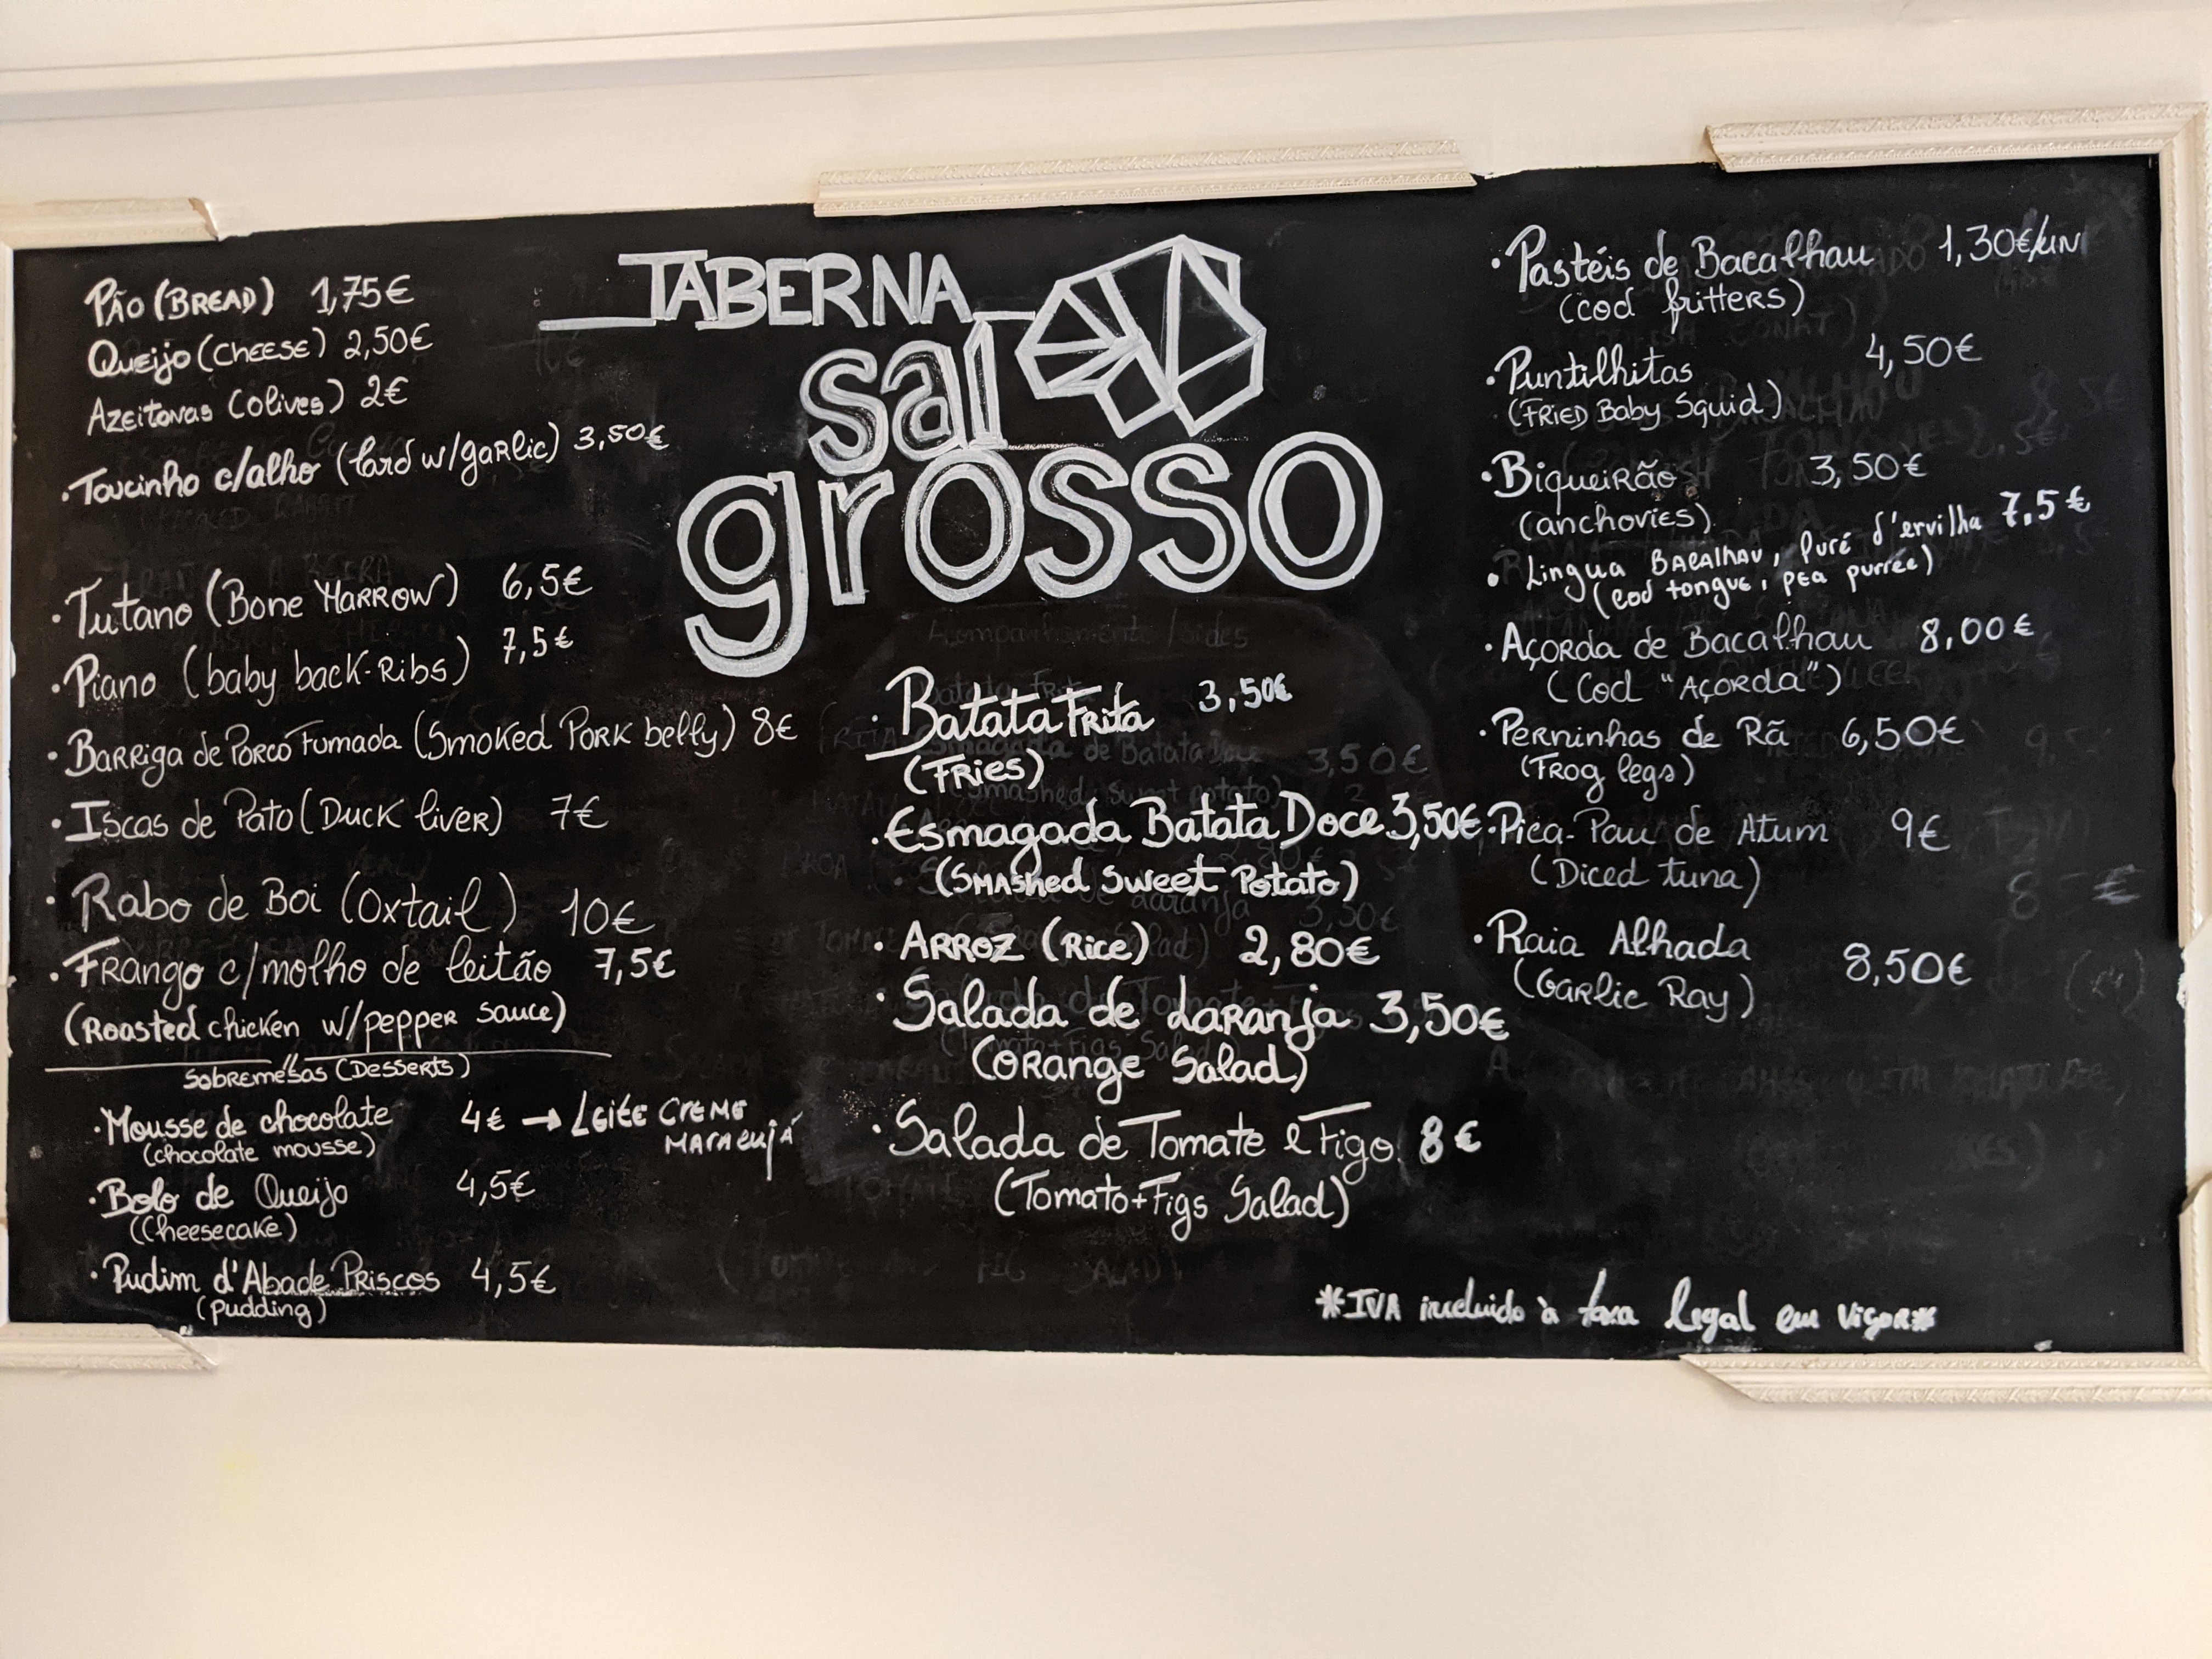 PÃO (BREAD) 1,75€
QUEIJO (CHEESE) 2,50€
AZEITONAS (olives) 2€
·Toucinho c/alho (lard w/garlic) 3,50€
·Tutano (Bone MARROW) 6,5€
·Piano (baby back-Ribs) 7,5€
·Barriga de Porco Fumada (Smoked Pork belly) 8€
·Iscas de Pato (Duck liver) 7€
·Rabo de Boi (Oxtail) 10€
·Frango c/molho de leitão 7,5€
(Roasted chicken w/pepper sauce)
Sobremesas (Desserts)
·Mousse de chocolate 4€ → Leite Creme
(chocolate mousse) Maracujá
·Bolo de Queijo 4,5€
(Cheesecake)
·Pudim d'Abade Priscos 4,5€
(pudding)
TABERNA
sal
grosso
·Batata Frita 3,50€
(Fries)
·Esmagada Batata Doce 3,50€
(Smashed Sweet Potato)
·ARROZ (Rice) 2,80€
·Salada de Laranja 3,50€
(Orange Salad)
·Salada de Tomate e Figo 8€
(Tomato+Figs Salad)
·Pastéis de Bacalhau 1,30€/UN
(cod fritters)
·Puntilhitas 4,50€
(FRIED Baby Squid)
·Biqueirão 3,50€
(anchovies)
·Lingua Bacalhau, Puré d'ervilha 7,5€
(cod tongue, pea purrée)
·Açorda de Bacalhau 8,00€
(Cod "Açorda")
·Perninhas de Rã 6,50€
(Frog legs)
·Pica-Pau de Atum 9€
(Diced tuna)
·Raia Alhada 8,50€
(Garlic Ray)
*IVA incluido à taxa legal em vigor*